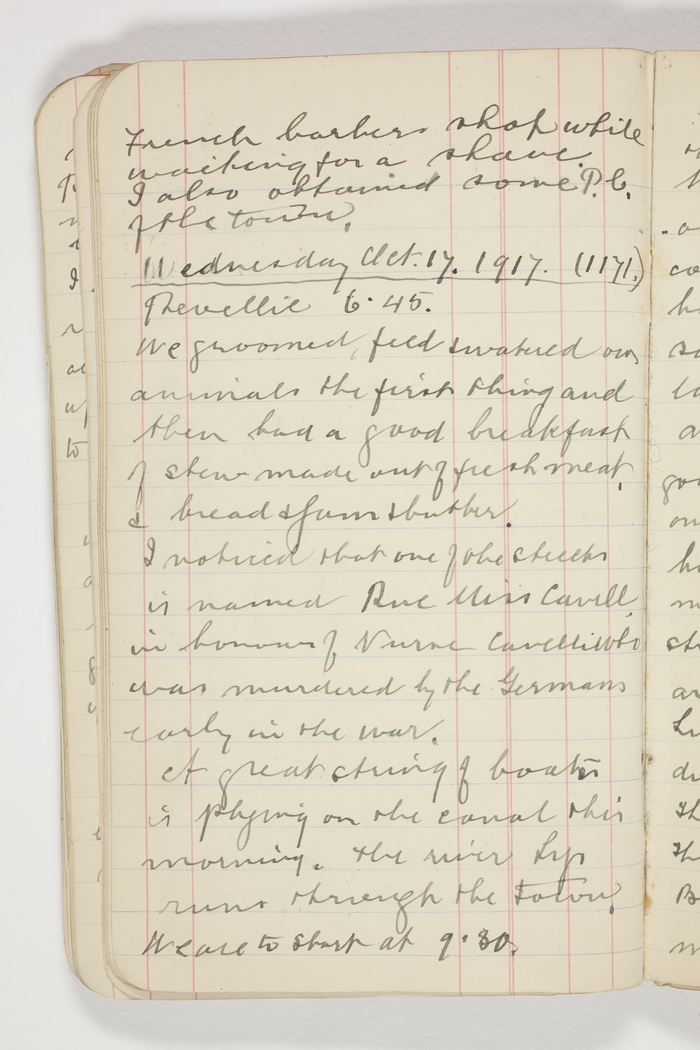 French barbers shop while
waiting for a shave.
I also obtained some P.C.
of the town.
Wednesday Oct. 17. 1917. (1171.)
Revellie 6.45.
We groomed, feed & watered our
animals the first thing and
then had a good breakfast
of stew made out of fresh meat,
& bread & jam & butter.
I noticed that one of the streets
is named Rue Miss Cavell,
in honour of Nurse Cavell who
was murdered by the Germans
early in the war.
A great string of boats
is plying on the canal this
morning. The river Lys
runs through the town.
We are to start at 9.30.